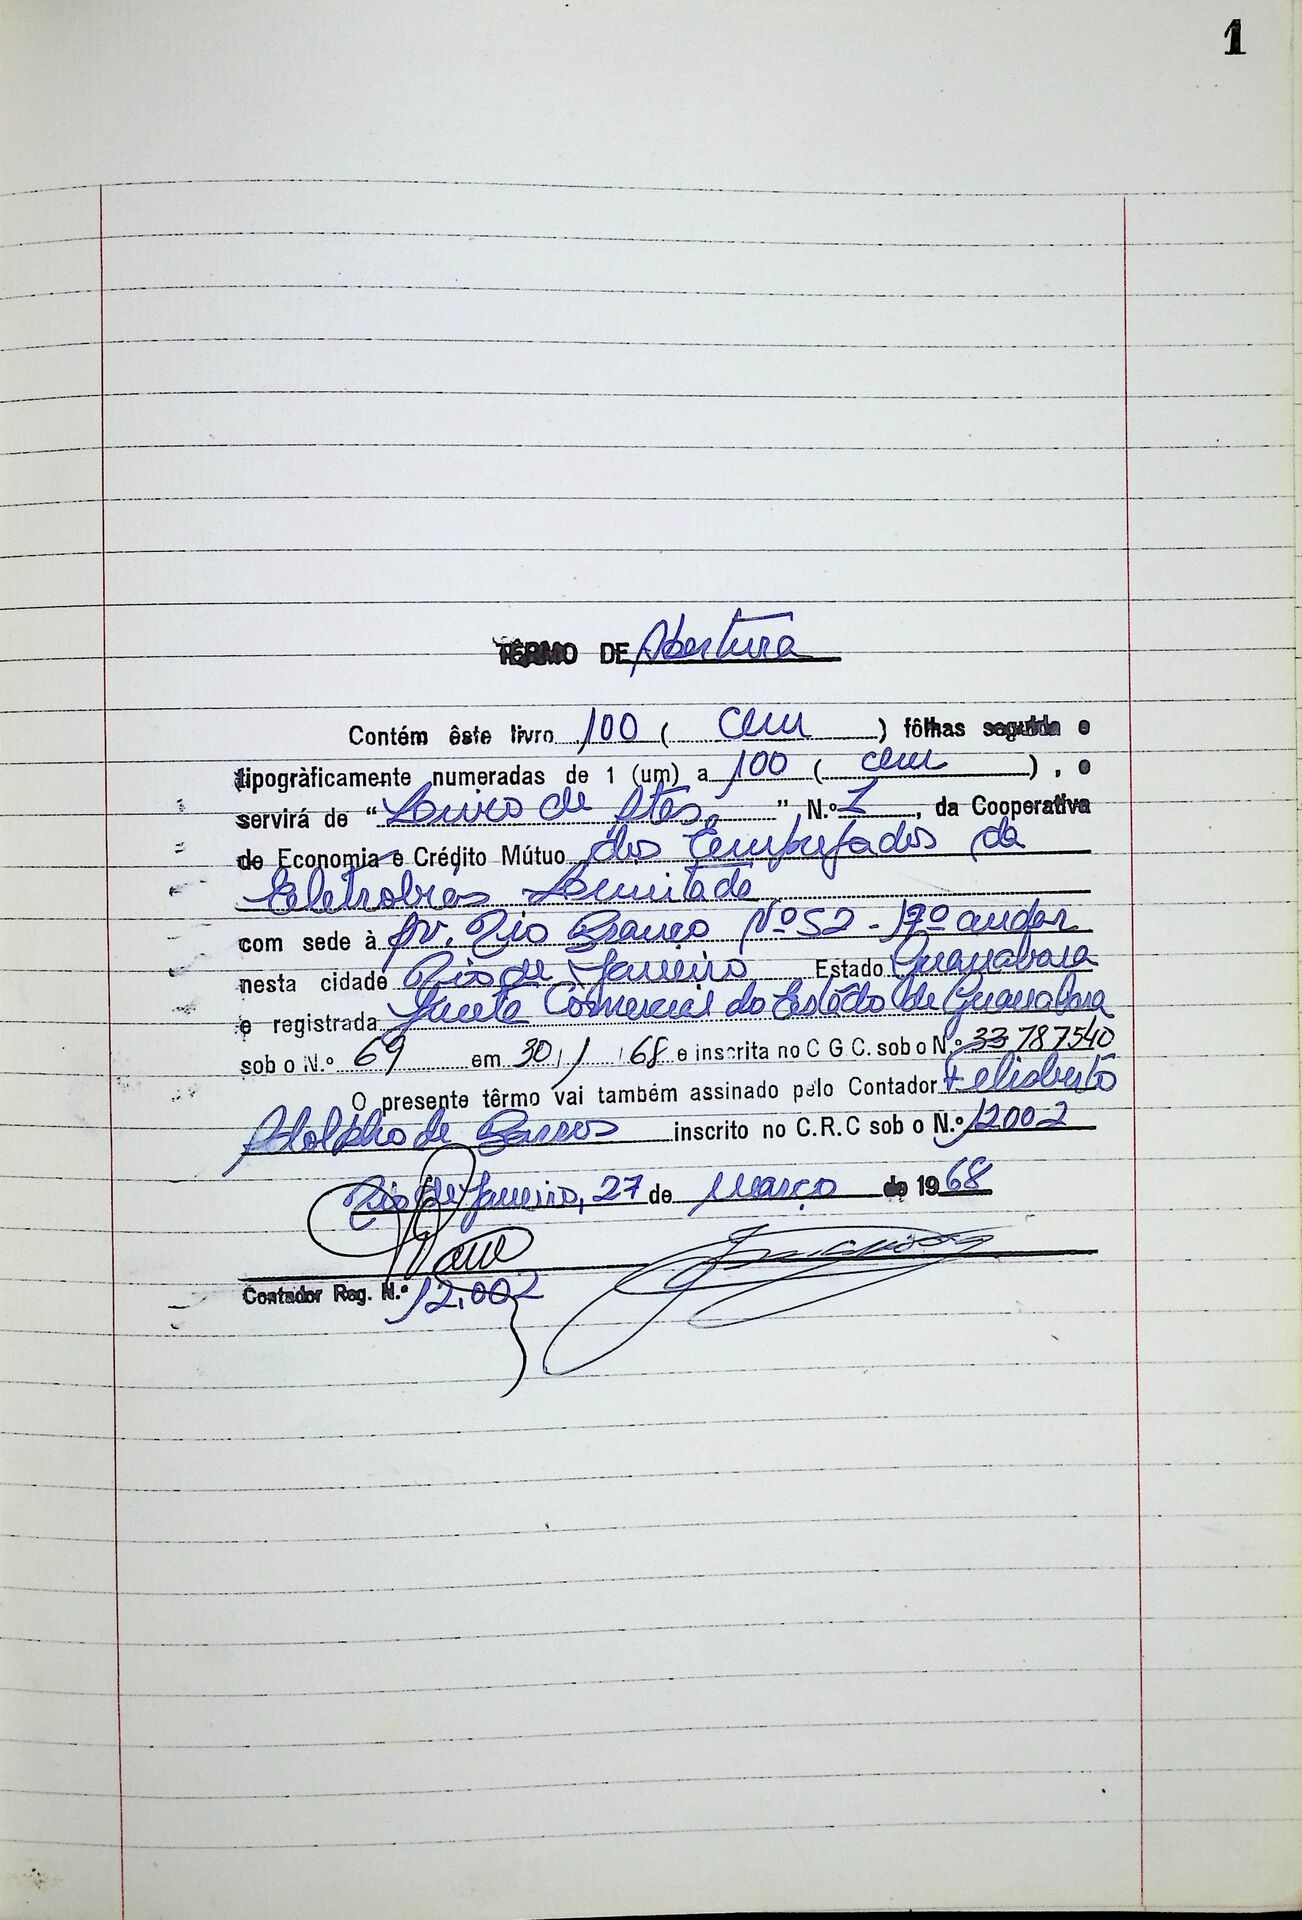 1
TÊRMO DE Abertura
Contém êste livro 100 ( cem ) fôlhas seguida e
tipogràficamente numeradas de 1 (um) a 100 ( cem ) , e
servirá de “ Livro de Atas ” N.º 1 , da Cooperativa
de Economia e Crédito Mútuo dos Empregados da
Eletrobrás Limitada
com sede à Av. Rio Branco Nº 52 - 17º andar
nesta cidade Rio de Janeiro Estado Guanabara
e registrada Junta Comercial do Estado de Guanabara
sob o N.º 69 em 30/1/68 e inscrita no C G C. sob o N.º 33 787540
O presente têrmo vai também assinado pelo Contador Felisberto
Adolpho de Barros inscrito no C.R.C sob o N.º 12002
Rio de Janeiro, 27 de março de 1968
Contador Reg. N.º 12.002